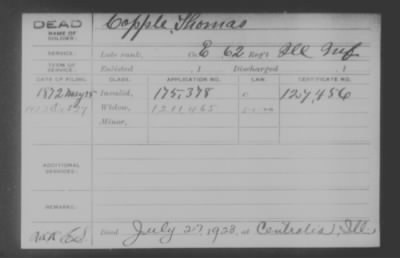 DEAD
NAME OF SOLDIER: Copple Thomas
SERVICE: Late rank, Co. E 62 Reg't Ill Inf
TERM OF SERVICE: Enlisted , 1 Discharged , 1
DATE OF FILING. CLASS. APPLICATION NO. LAW. CERTIFICATE NO.
1872 May 25 Invalid, 175,378 127,456
Widow, 1211465
Minor,
ADDITIONAL SERVICES:
REMARKS:
Died July 27, 1923, at Centralia, Ill